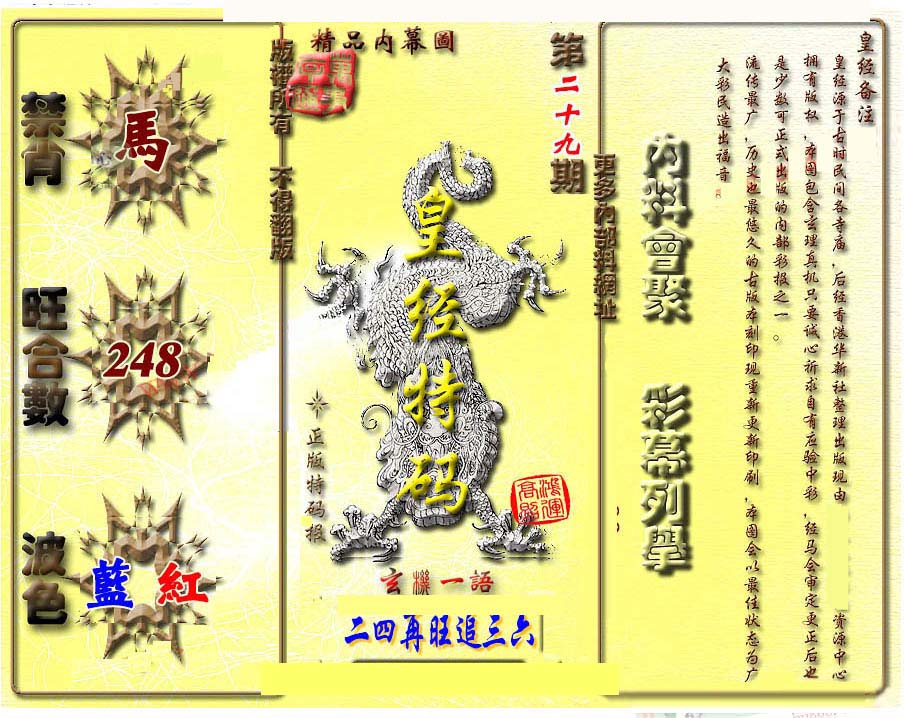 精品内幕圖
版權所有 不得翻版
禁肖
馬
旺合數
248
波色
藍 紅
第二十九期
皇经特码
正版特码报
鴻運高照
玄機一語
二四再旺追三六
更多內部料網址
內料會聚
彩幕列舉
皇经备注
皇经源于古时民间各寺庙,后经香港华新社整理出版现由
资源中心
拥有版权,本图包含玄理真机只要诚心祈求自有应验中彩,经马会审定更正后也
是少数可正式出版的内部彩报之一。
流传最广,历史也最悠久的古版本刻印现重新更新印刷,本图会以最佳状态为广
大彩民造出福音